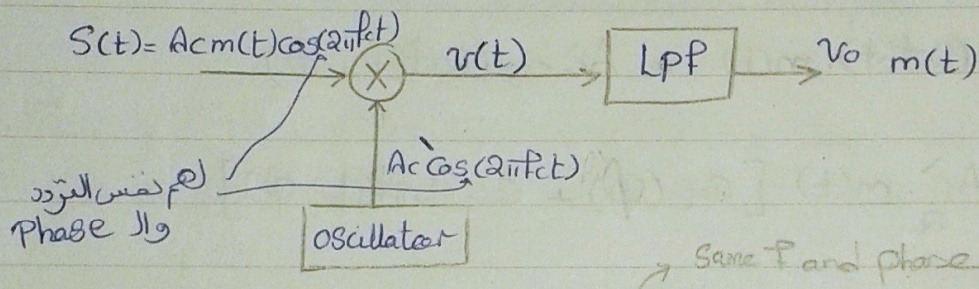 S(t)= Acm(t)cos(2πfct)
v(t)
LPF
Vo m(t)
Ac`Cos(2πfct)
لهم نفس التردد
وال Phase
oscillator
Same f and phase